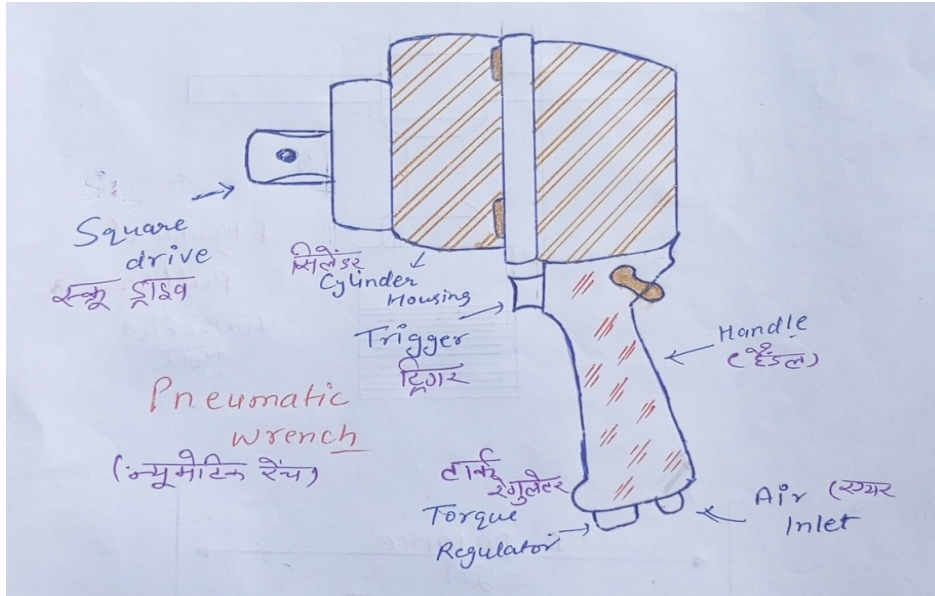 Square
drive
स्क्रू ड्राइव
सिलेंडर
Cylinder
Housing
Trigger
ट्रिगर
Handle
(हैंडल)
Pneumatic
wrench
(न्यूमेटिक रेंच)
टार्क
रेगुलेटर
Torque
Regulator
Air (एयर
Inlet